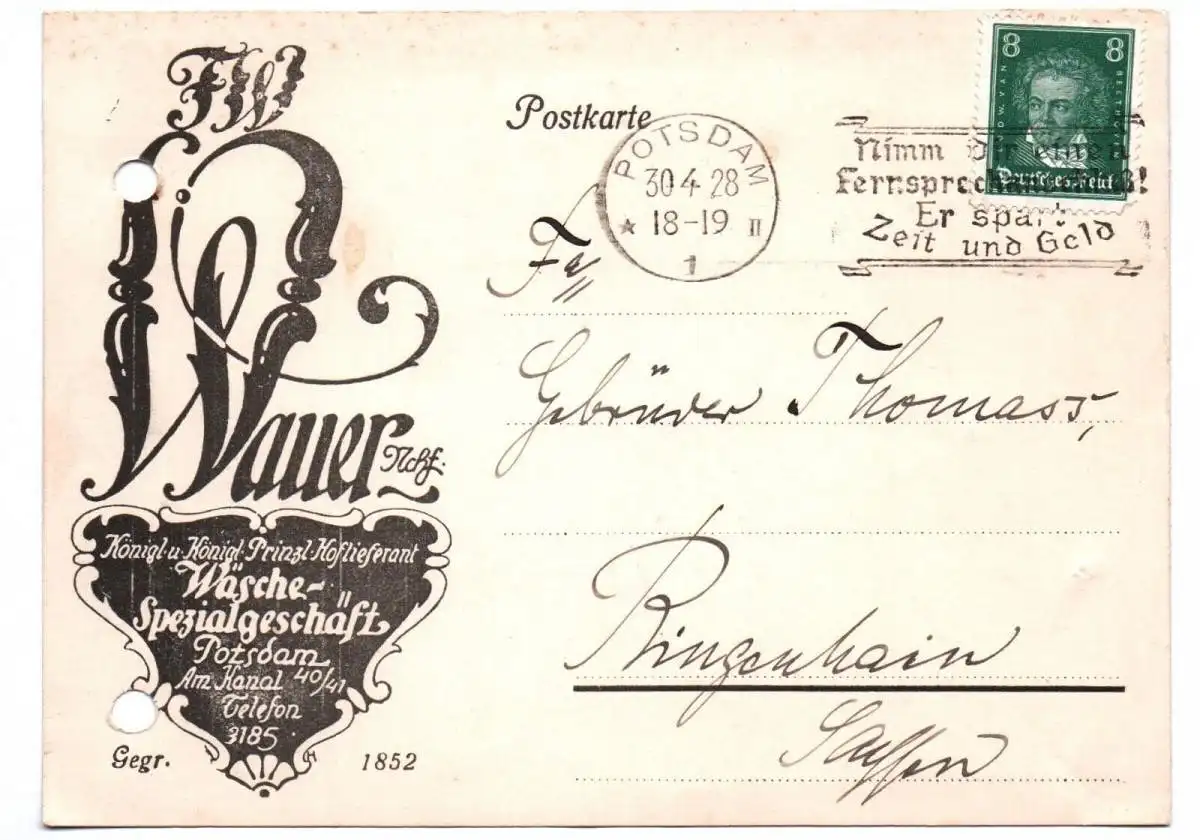 FW
Wauer Nchf.
Königl. u. Königl. Prinzl. Hoflieferant
Wäsche-
Spezialgeschäft
Potsdam
Am Kanal 40/41
Telefon
3185
Gegr. 1852
Postkarte
POTSDAM
30 4 28
★ 18-19 II
1
8 8
Deutsches Reich
Nimm Dir einen
Fernsprechanschluß!
Er spart
Zeit und Geld
Fa
Gebrüder Thomass,
Ringenhain
Sachsen